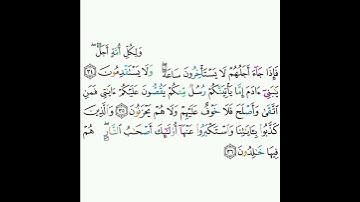 وَلِكُلِّ أُمَّةٍ أَجَلٌ ۖ
فَإِذَا جَآءَ أَجَلُهُمْ لَا يَسْتَأْخِرُونَ سَاعَةً ۖ وَلَا يَسْتَقْدِمُونَ ٣٤
يَٰبَنِىٓ ءَادَمَ إِمَّا يَأْتِيَنَّكُمْ رُسُلٌ مِّنكُمْ يَقُصُّونَ عَلَيْكُمْ ءَايَٰتِى فَمَنِ
ٱتَّقَىٰ وَأَصْلَحَ فَلَا خَوْفٌ عَلَيْهِمْ وَلَا هُمْ يَحْزَنُونَ ٣٥ وَٱلَّذِينَ
كَذَّبُوا۟ بِـَٔايَٰتِنَا وَٱسْتَكْبَرُوا۟ عَنْهَآ أُو۟لَٰٓئِكَ أَصْحَٰبُ ٱلنَّارِ ۖ هُمْ
فِيهَا خَٰلِدُونَ ٣٦